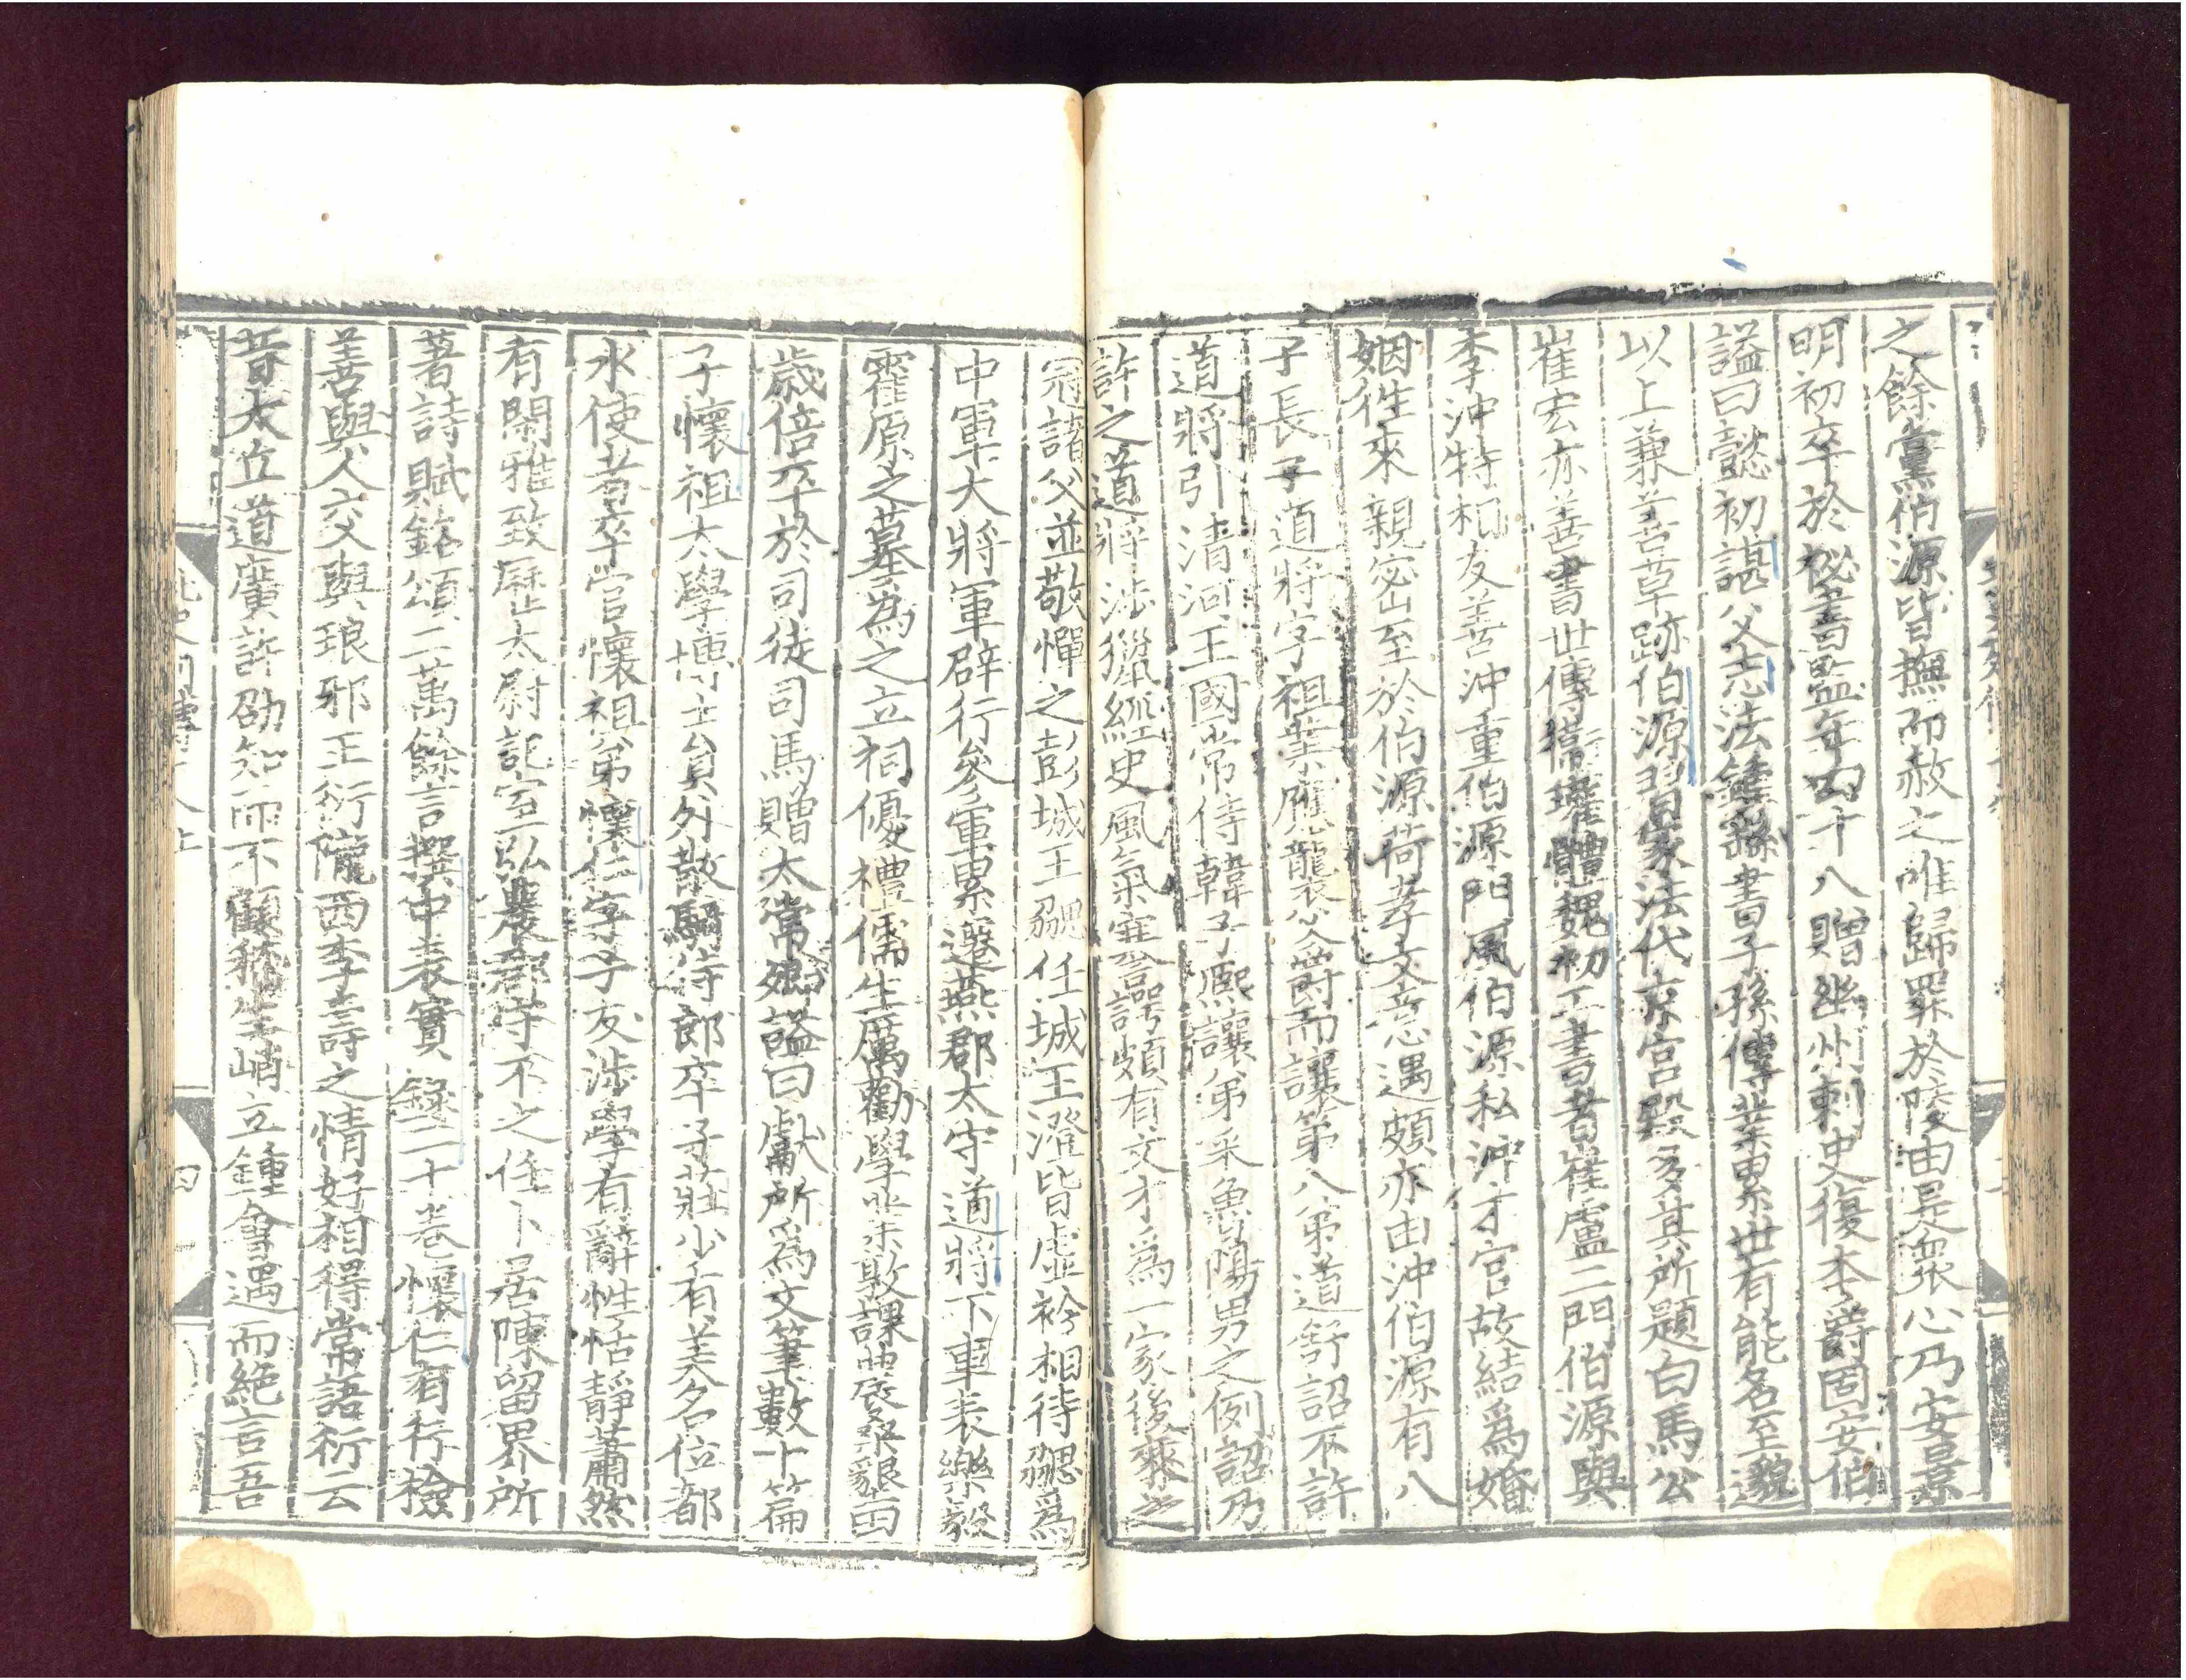 之餘黨伯源皆撫而赦之唯歸罪於陵由是衆心乃安景
明初卒於秘書監年四十八贈幽州刺史復本爵固安伯
謚曰懿初諶父志法鍾繇書子孫傳業累世有能名至邈
以上兼善草跡伯源習家法代京宮殿多其所題白馬公
崔宏亦善書世傳衛瓘體魏初工書者崔盧二門伯源與
李沖特相友善沖重伯源門風伯源私沖才官故結爲婚
姻徃來親密至於伯源荷孝文意遇頗亦由沖伯源有八
子長子道將字祖業應襲父爵而讓第八弟道舒詔不許
道將引清河王國常侍韓子熙讓弟采魯陽男之例詔乃
許之道將涉獵經史風氣謇諤頗有文才爲一家後來之
冠諸父並敬憚之彭城王勰任城王澄皆虛衿相待勰爲
中軍大將軍辟行參軍累遷燕郡太守道將下車表樂毅
霍原之墓爲之立祠優禮儒生厲勸學業敦課農桑墾田
歲倍卒於司徒司馬贈太常卿謚曰獻所爲文筆數十篇
子懷祖太學博士員外散騎侍郎卒子莊少有美名位都
水使者卒官懷祖弟懷仁字子友涉學有辭性恬靜蕭然
有閑雅致歷太尉記室弘農郡守不之任卜居陳留界所
著詩賦銘頌二萬餘言撰中表實錄二十卷懷仁有行檢
善與人交與琅邪王衍隴西李壽之情好相得常語衍云
昔太丘道廣許劭知而不顧嵇生峭立鍾會遇而絶言吾